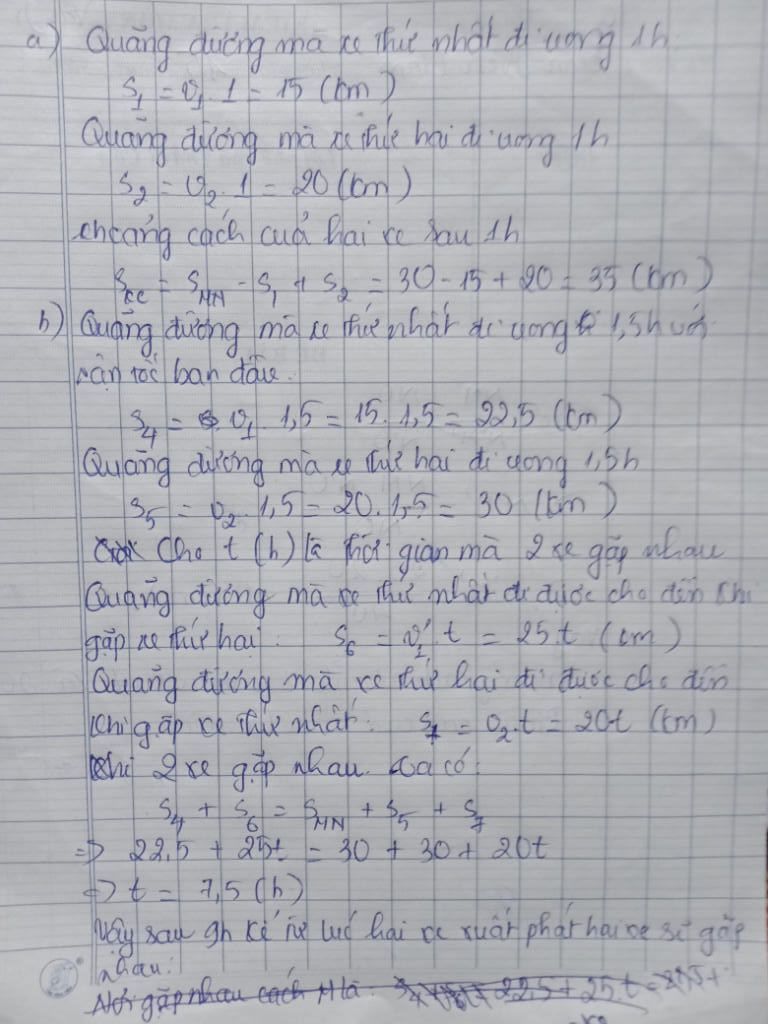 a) Quãng đường mà xe thứ nhất đi trong 1h
S₁ = v₁.1 = 15 (km)
Quãng đường mà xe thứ hai đi trong 1h
S₂ = v₂.1 = 20 (km)
khoảng cách của hai xe sau 1h
S = S_MN - S₁ + S₂ = 30 - 15 + 20 = 35 (km)
b) Quãng đường mà xe thứ nhất đi trong 1,5h với
vận tốc ban đầu.
S₄ = v₁.1,5 = 15.1,5 = 22,5 (km)
Quãng đường mà xe thứ hai đi trong 1,5h
S₅ = v₂.1,5 = 20.1,5 = 30 (km)
Cho t (h) là thời gian mà 2 xe gặp nhau
Quãng đường mà xe thứ nhất đi được cho đến khi
gặp xe thứ hai: S₆ = v₁'.t = 25.t (km)
Quãng đường mà xe thứ hai đi được cho đến
khi gặp xe thứ nhất: S₇ = v₂.t = 20t (km)
Khi 2 xe gặp nhau. Ta có:
S₄ + S₆ = S_MN + S₅ + S₇
=> 22,5 + 25t = 30 + 30 + 20t
=> t = 7,5 (h)
Vậy sau 9h kể từ lúc hai xe xuất phát hai xe sẽ gặp
nhau.
Nơi gặp nhau cách M là: 22,5 + 25.t =